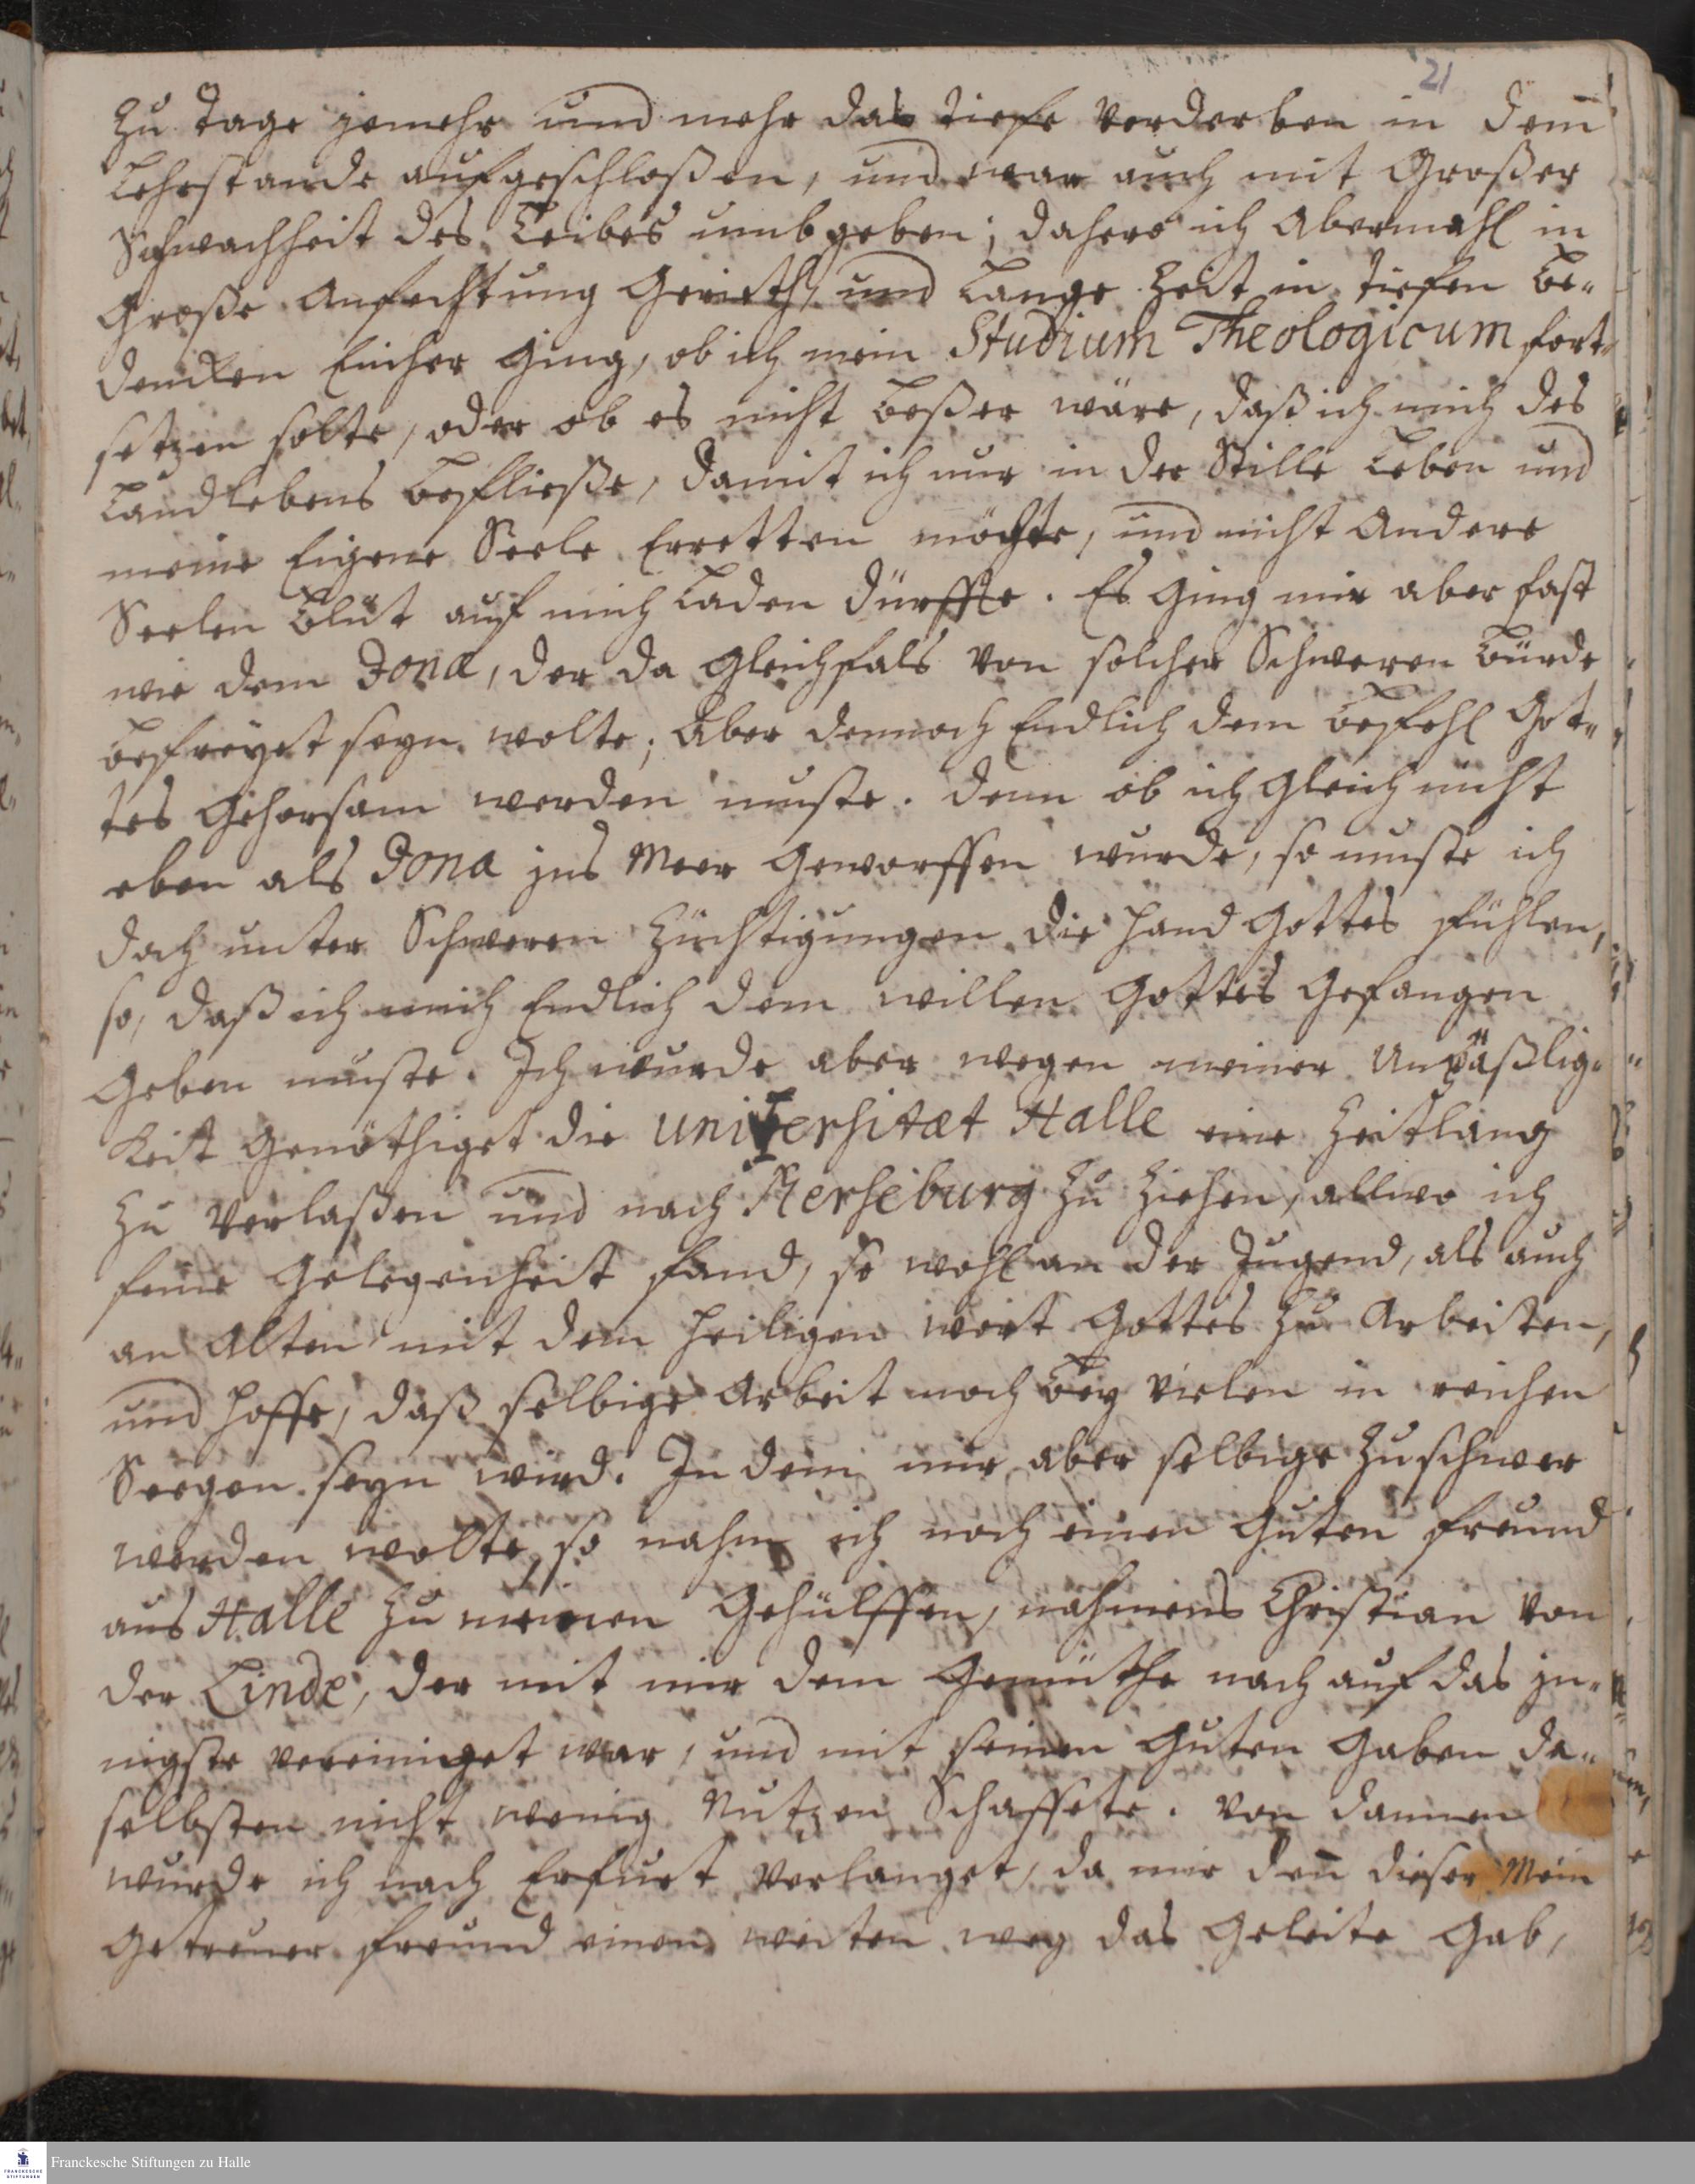 21
zu tage jemehr und mehr das tiefe Verderben in dem̄
Lehrstande aufgeschloßen, und war auch mit Großer
Schwachheit des Leibes umbgeben; dahero ich Abermahl in
Große Anfechtung Gerieth, und Lange Zeit in tiefen Be-
dencken Einher Ging, ob ich mein Studium Theologicum fort-
setzen solte, oder ob es nicht Beßer wäre, daß ich mich des
Landlebens Befließe, damit ich nur in der Stille Leben und
meine Eigene Seele Erretten möchte, und nicht Andere
Seelen Blut auf mich Laden dürffte. Es Ging mir aber fast
wie dem Jonæ, der da Gleichfals von solcher Schweren Bürde
Befreyet seyn wolte; Aber dennoch Endlich dem Befehl Got-
tes Gehorsam werden muste. Denn ob ich Gleich nicht
eben als Jona jns Meer Geworffen wurde, so muste ich
doch unter Schweren Züchtigungen die Hand Gottes fühlen,
so, daß ich mich Endlich dem willen Gottes Gefangen
Geben muste. Ich wurde aber wegen meiner Unpäßlig-
Keit Genöthiget die Universitæt Halle eine Zeitlang
zu Verlaßen und nach Merseburg zu Ziehen, allwo ich
feine Gelegenheit fand, so wohl an der Jugend, als auch
an Alten mit dem Heiligen wort Gottes zu Arbeiten,
und hoffe, daß selbige Arbeit noch Bey Vielen in reichen
Seegen seyn wird. In dem mir aber selbige Zuschwer
werden wolte, so nahm ich noch einen Guten Freund
aus Halle zu meinen Gehülffen, nahmens Christian Von
der Linde, der mit mir dem Gemüthe nach auf das jn-
nigste vereiniget war, und mit seinen Guten Gaben da-
selbsten nicht wenig Nutzen Schaffete. Von dannen
wurde ich nach Erfurt Verlanget, da mir den̄ dieser Mein
Getreuer Freund einen weiten weg das Geleite Gab,
Franckesche Stiftungen zu Halle